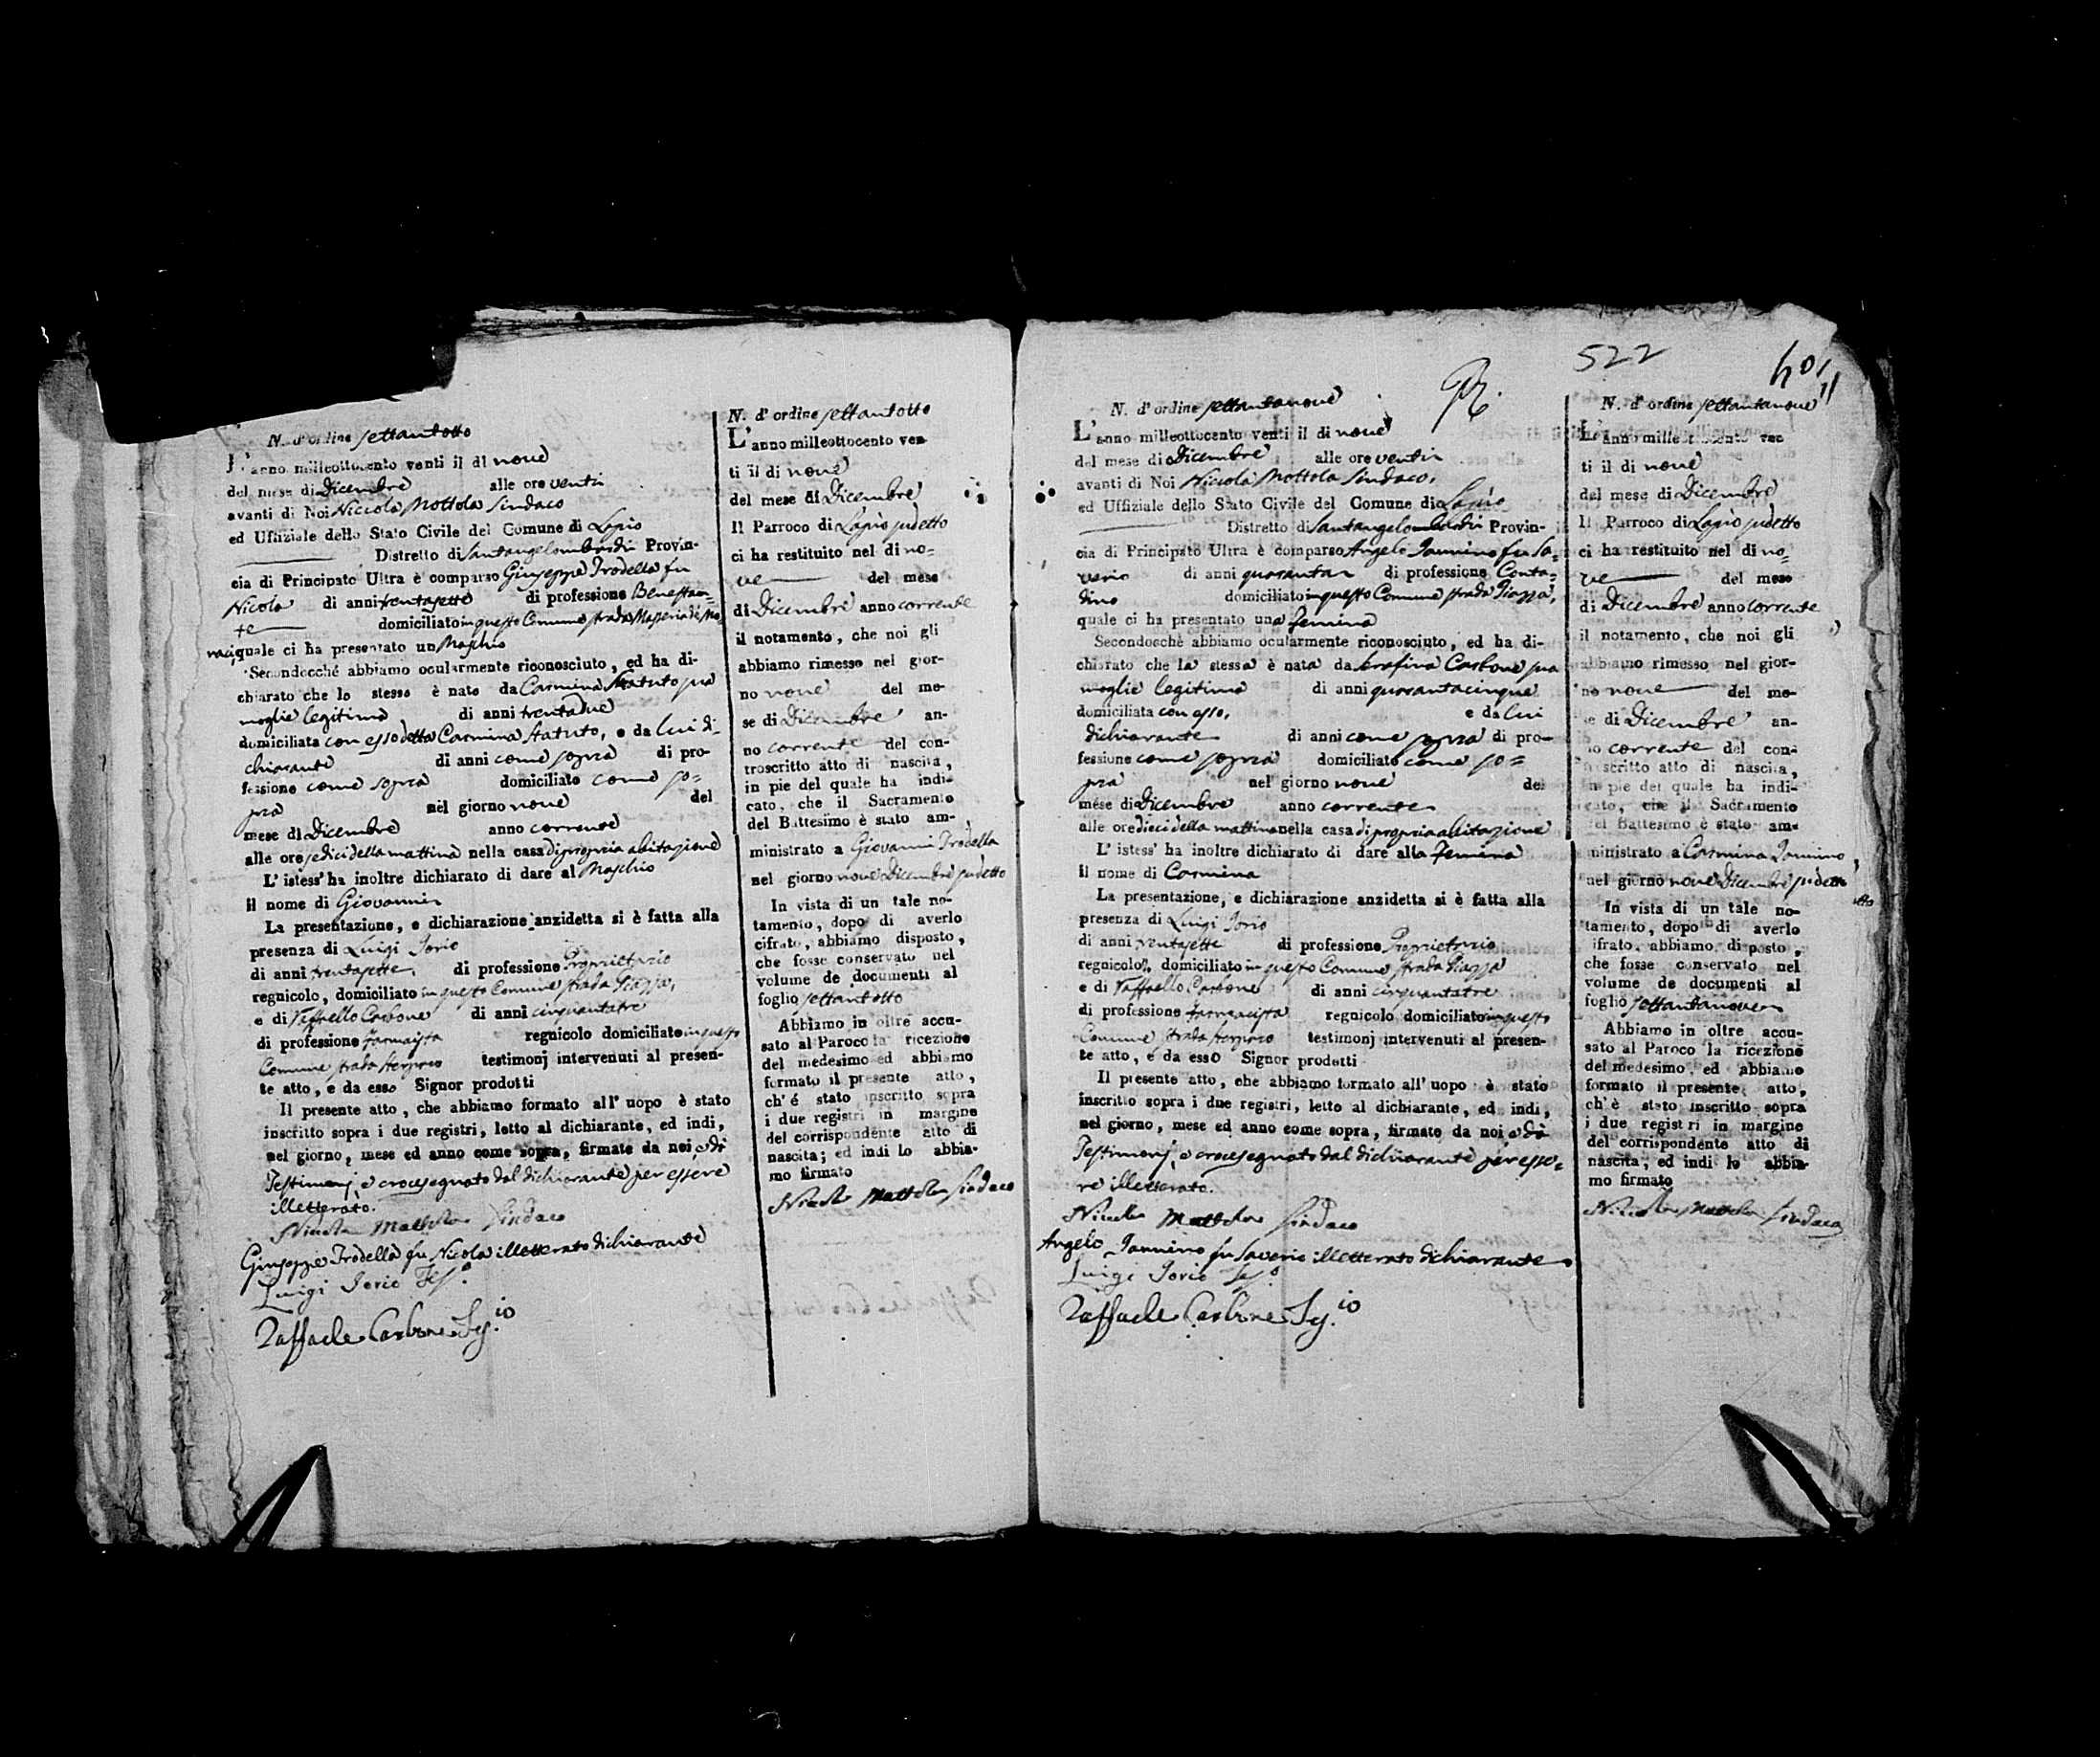 N. d'ordine settantotto
L'anno milleottocento venti il di nove
del mese di Dicembre alle ore venti
avanti di Noi Niccola Mottola Sindaco
ed Uffiziale dello Stato Civile del Comune di Lapio
Distretto di Santangelombardi Provin-
cia di Principato Ultra è comparso Giuseppe Trodella fu
Nicola di anni trentasette di professione Benestan=
te domiciliato in questo Comune strada Masseria di
quale ci ha presentato un Maschio
Secondocché abbiamo ocularmente riconosciuto, ed ha di-
chiarato che lo stesso è nato da Carmina Statuto sua
moglie legitima di anni trentadue
domiciliata con esso detta Carmina Statuto, e da lui di-
chiarante di anni come sopra di pro-
fessione come sopra domiciliato come so=
pra nel giorno nove del
mese di Dicembre anno corrente
alle ore sedici della mattina nella casa di propria abitazione
L'istess' ha inoltre dichiarato di dare al Maschio
il nome di Giovanni
La presentazione, e dichiarazione anzidetta si è fatta alla
presenza di Luigi Iorio
di anni trentasette, di professione Proprietario
regnicolo, domiciliato in questo Comune strada Piazza,
e di Raffaello Carbone di anni cinquantatre
di professione Farmacista regnicolo domiciliato in questo
Comune strada testimonj intervenuti al presen-
te atto, e da esso Signor prodotti
Il presente atto, che abbiamo formato all' uopo è stato
inscritto sopra i due registri, letto al dichiarante, ed indi,
nel giorno, mese ed anno come sopra, firmate da noi, e di
Testimonj, e crocesegnato dal dichiarante per essere
illetterato.
Nicola Mottola Sindaco
Giuseppe Trodella fu Nicola illetterato dichiarante
Luigi Iorio Tes.o
Raffaele Carbone Tes.io
N. d'ordine settantotto
L'anno milleottocento ven
ti il di nove
del mese di Dicembre
Il Parroco di Lapio sudetto
ci ha restituito nel di no=
ve del mese
di Dicembre anno corrente
il notamento, che noi gli
abbiamo rimesso nel gior-
no nove del me-
se di Dicembre an-
no corrente del con-
troscritto atto di nascita,
in pie del quale ha indi-
cato, che il Sacramento
del Battesimo è stato am-
ministrato a Giovanni Trodella
nel giorno nove Dicembre sudetto
In vista di un tale no-
tamento, dopo di averlo
cifrato, abbiamo disposto,
che fosse conservato nel
volume de documenti al
foglio settantotto
Abbiamo in oltre accu-
sato al Paroco la ricezione
del medesimo ed abbiamo
formato il presente atto,
ch'é stato inscritto sopra
i due registri in margine
del corrispondente atto di
nascita; ed indi lo abbia-
mo firmato
Nicola Mottola Sindaco
522
401
N. d'ordine settantanove
L'anno milleottocento venti il di nove
del mese di Dicembre alle ore venti
avanti di Noi Niccola Mottola Sindaco,
ed Uffiziale dello Stato Civile del Comune di Lapio
Distretto di Santangelombardi Provin-
cia di Principato Ultra è comparso Angelo Iannino fu Sa=
verio di anni quaranta di professione Conta=
dino domiciliato in questo Comune strada Piazza,
quale ci ha presentato una Femina
Secondocchè abbiamo ocularmente riconosciuto, ed ha di-
chiarato che la stessa è nata da Serafina Carbone sua
moglie legitima di anni quarantacinque
domiciliata con esso, e da lui
dichiarante di anni come sopra di pro-
fessione come sopra domiciliato come so=
pra nel giorno nove del
mese di Dicembre anno corrente
alle ore dieci della mattina nella casa di propria abitazione
L'istess' ha inoltre dichiarato di dare alla Femina
il nome di Carmina
La presentazione, e dichiarazione anzidetta si è fatta alla
presenza di Luigi Iorio
di anni trentasette di professione Proprietario
regnicolo, domiciliato in questo Comune strada Piazza
e di Raffaello Carbone di anni cinquantatre
di professione Farmacista regnicolo domiciliato in questo
Comune strada testimonj intervenuti al presen-
te atto, e da esso Signor prodotti
Il presente atto, che abbiamo formato all' uopo è stato
inscritto sopra i due registri, letto al dichiarante, ed indi,
nel giorno, mese ed anno come sopra, firmato da noi, e di
Testimonj, e crocesegnato dal dichiarante per esse=
re illetterato.
Nicola Mottola Sindaco
Angelo Iannino fu Saverio illetterato dichiarante
Luigi Iorio Tes.o
Raffaele Carbone Tes.io
N. d'ordine settantanove
L'anno milleottocento ven
ti il di nove
del mese di Dicembre
Il Parroco di Lapio sudetto
ci ha restituito nel di no=
ve del mese
di Dicembre anno corrente
il notamento, che noi gli
abbiamo rimesso nel gior-
no nove del me-
se di Dicembre an-
no corrente del con-
troscritto atto di nascita,
in pie del quale ha indi-
cato, che il Sacramento
del Battesimo è stato am-
ministrato a Carmina Iannino,
nel giorno nove Dicembre sudetto
In vista di un tale no-
tamento, dopo di averlo
cifrato, abbiamo disposto,
che fosse conservato nel
volume de documenti al
foglio settantanove
Abbiamo in oltre accu-
sato al Paroco la ricezione
del medesimo, ed abbiamo
formato il presente atto,
ch'è stato inscritto sopra
i due registri in margine
del corrispondente atto di
nascita, ed indi lo abbia-
mo firmato
Nicola Mottola Sindaco